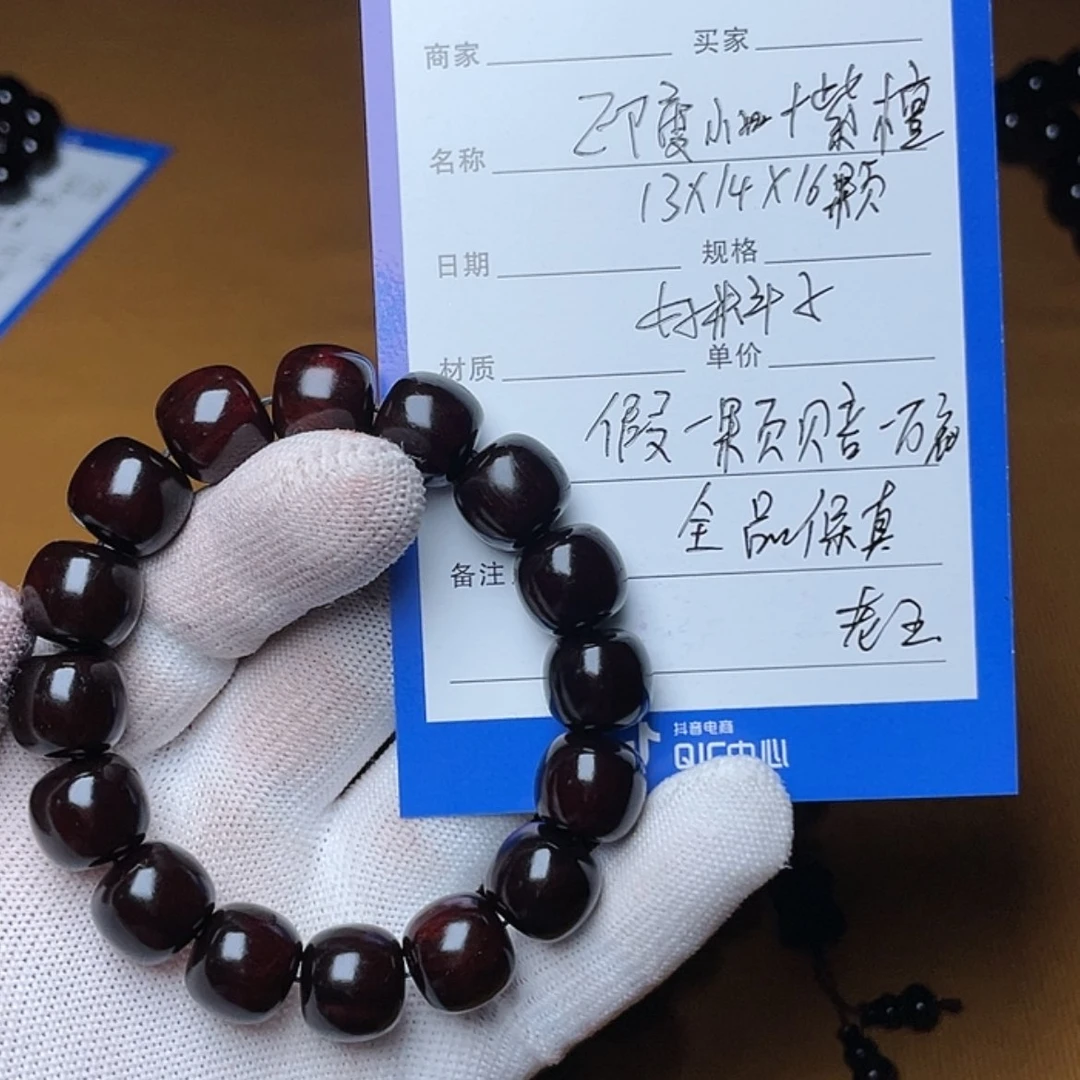 商家 买家
印度小叶紫檀
名称
13X14X16颗
日期 规格
材质 单价
假一颗赔一万
全品保真
备注
老王
抖音电商
QIC中心